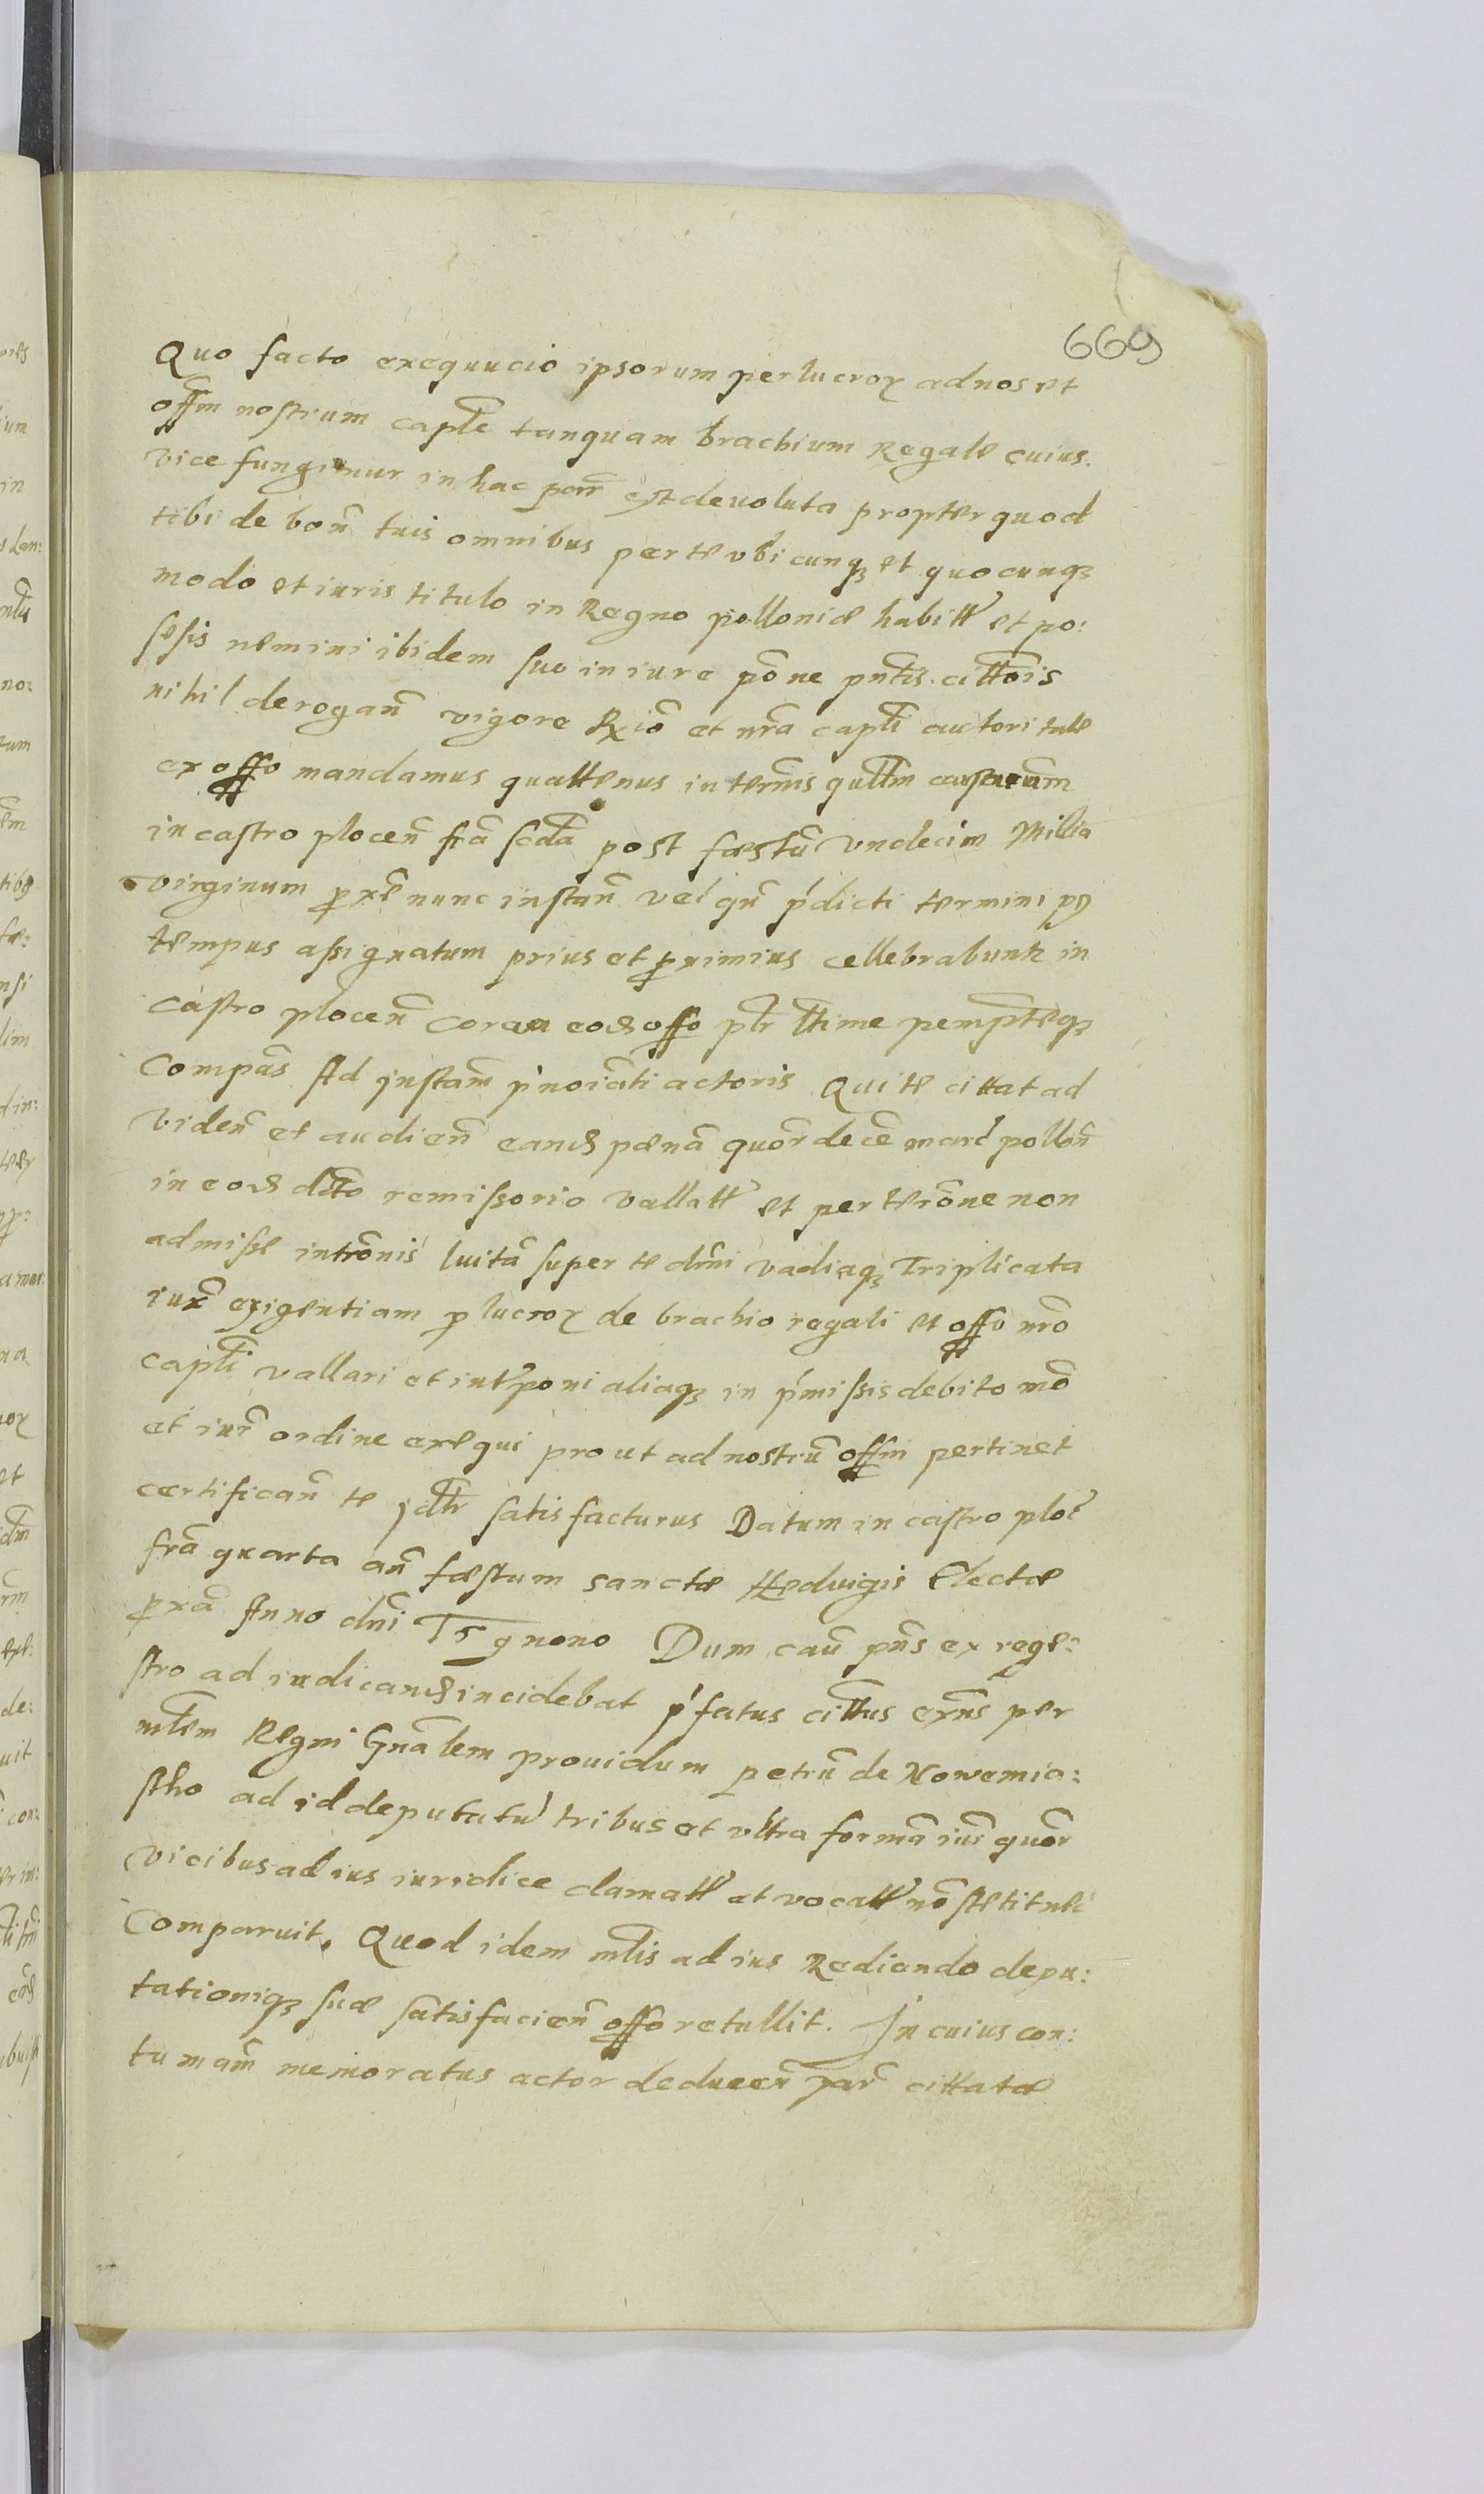 669
Quo facto exequucio ipsorum perlucroꝝ ad nos et
offm̃ nostrum caplẽ tanquam brachium Regale cuius.
vice fungimur in hac par̃ est deuoluta propter quod
tibi de boñ tuis omnibus per te vbicunqꝫ et quocunqꝫ
modo et iuris titulo in Regno polloniæ habitt̃ et po:
sesis nemini ibidem suo in iure põne pñtis. cittõis
nihil derogañ vigore Rxiõ et nrã capłi autoritate
ex offo mandamus quattenus in termĩs qułłm causarum
in castro ploceñ frã scdã post fæstũ vndecim Millia
virginum ꝓxẽ nunc instañ vel qñ p̃dicti termini pꝰ
tempus assignatum prius et ꝓximius cellebrabunt̃ in
castro ploceñ coram eod offo płr łłtime pempt̃eqꝫ
Compãs Ad jnstam̃ p̃noiãti actoris Qui te cittat ad
videñ et audieñ eand pænã quõr decẽ marč polloñ
in eod dctõ remissorio vallatt̃ et per teriõne non
admisse intrõnis luitã super te dñi vadiaqꝫ Triplicata
iux̃ exigentiam ꝑ lucroꝝ de brachio regali et offo nrõ
capłi vallari et int̃poni aliaqꝫ in p̃missis debito mõ
et iur̃ ordine exequi prout ad nostrũ offm̃ pertinet
certificañ te jdłr satisfacturus Datum in castro ploč
frã quarta añ fæstum sanctæ Hedvigis Electæ
ꝓxã Anno dñi Ts nono Dum caũ pñs ex rege:
stro ad iudicand incidebat p̃fatus cittus exñs per
młem Regni Gnãlem prouidum petrũ de Nowemia:
stho ad id deputatũ tribus et vltra formã iur̃ quõr
vicibus ad ius iuridice clamatt̃ et vocatt̃ nõ stetit nec
Comparuit. Quod idem młis ad ius Rediendo depu:
tationiqꝫ suæ satisfacieñ offo retullit. In cuius con:
tumam̃ memoratus actor deduceñ par̃ cittatæ